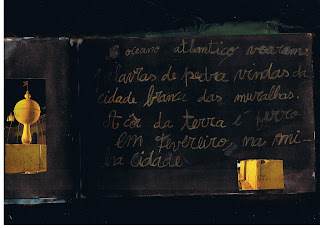 oceano atlantico voaram
palavras de pedra vindas da
cidade branca das muralhas.
A côr da terra é ferro
em fevereiro, na mi-
nha cidade